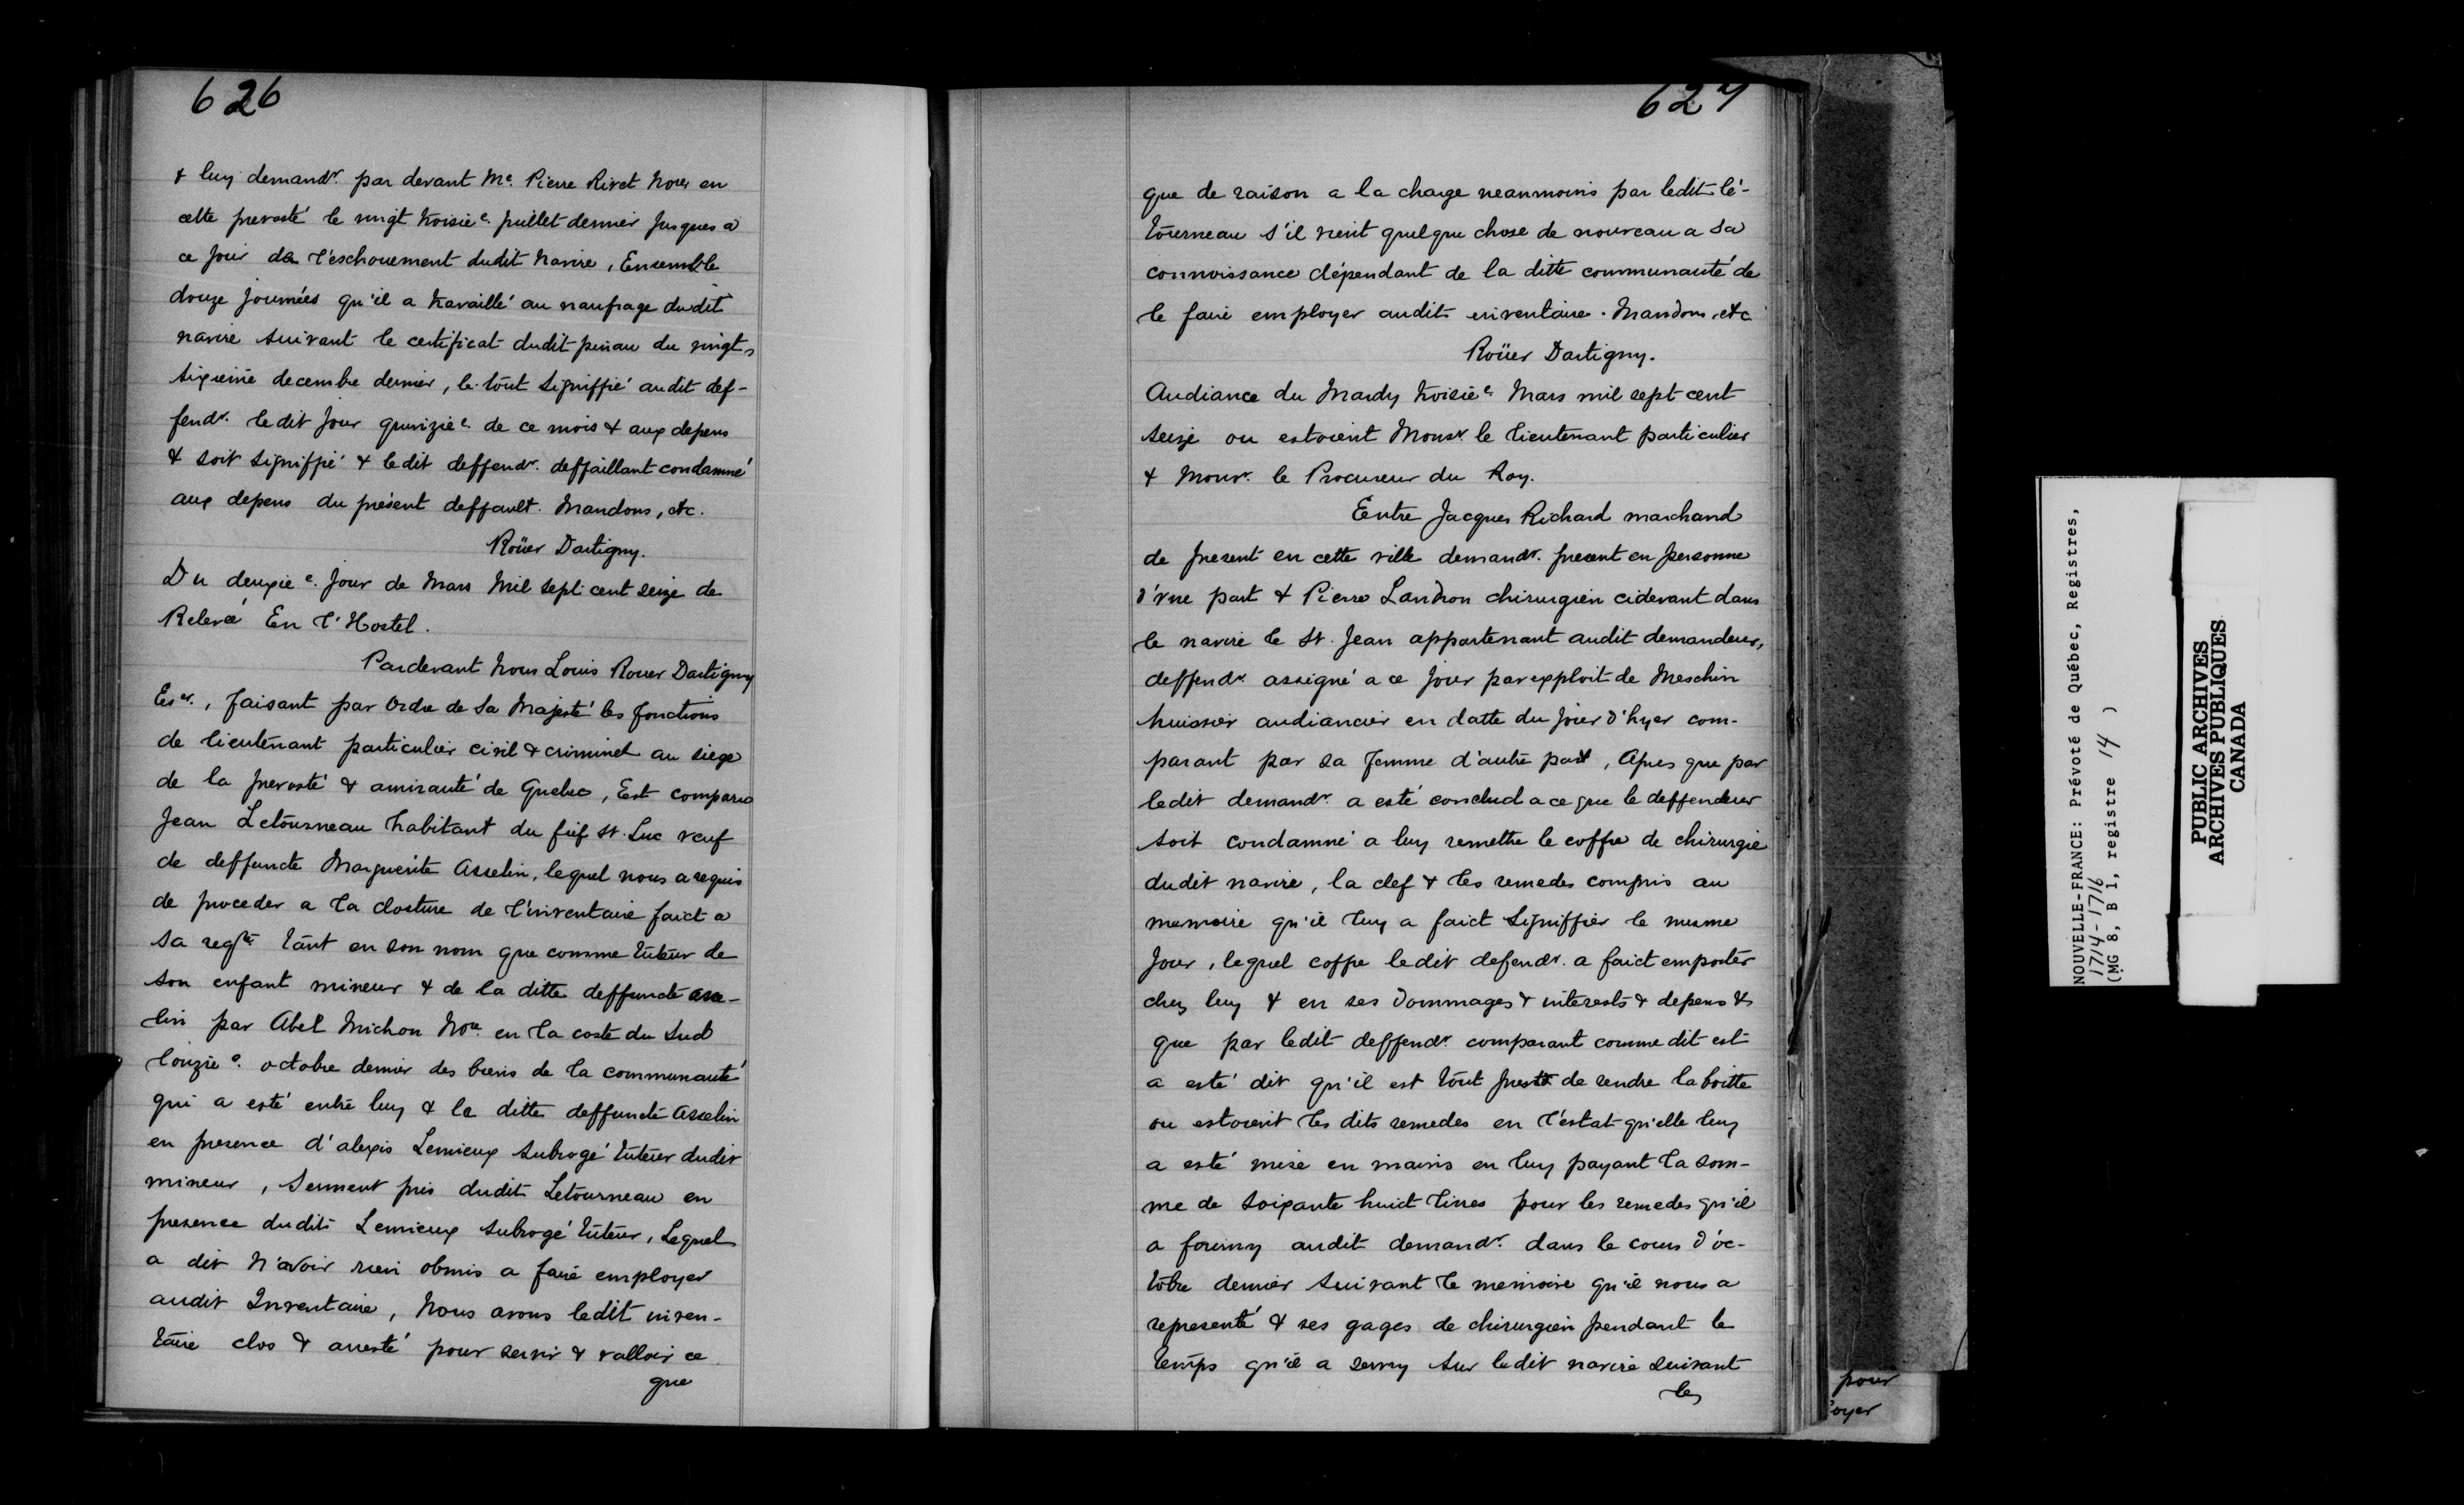 626
& luy demandr. par devant Me. Pierre Rivet Nore en
cette prevosté le vingt troisie e. juillet dernier jusques a
ce jour de l'eschouement dudit navire, Ensemble
douze journées qu'il a travaillé au naufrage dudit
navire suivant le certificat dudit pinau du vingt
sixiême decembre dernier, le tout signiffié audit def-
fendr. ledit jour quinzie e. de ce mois & aux depens
& soit signiffié & ledit deffendr. deffaillant condamné
aux depens du présent deffault. Mandons, etc.
Roüer Dartigny.
Du deuxie e. jour de Mars Mil sept cent seize de
Relevé En l'Hostel.
Pardevant Nous Louis Rouer Dartigny
Eser., faisant par Ordre de Sa Majesté les fonctions
de lieutenant particulier civil & criminel au siege
de la prevosté & amirauté de Quebec, Est comparu
Jean Letourneau habitant du fief St. Luc veuf
de deffuncte Marguerite Asselin, lequel nous a requis
de proceder a la closture de l'inventaire faict a
sa reqte. tant en son nom que comme tuteur de
son enfant mineur & de la ditte deffuncte asse-
lin par Abel Michon Nore en la coste du Sud
l'onzie e. octobre dernier des biens de la communauté
qui a esté entre luy & la ditte deffuncte Asselin
en presence d'alexis Lemieux subrogé tuteur dudit
mineur, Serment pris dudit Letourneau en
presence dudit Lemieux subrogé tuteur, Lequel
a dit N'avoir rien obmis a faire employer
audit Inventaire, Nous avons ledit inven-
taire clos & aresté pour servir & valloir ce
que
627
que de raison a la charge neanmoins par ledit lé-
tourneau s'il vient quelque chose de nouveau a sa
connoissance dépendant de la ditte communauté de
le faire employer audit inventaire. Mandons, etc
Roüer Dartigny.
Audiance du Mardy troisie e. Mars mil sept cent
seize ou estoient Monsr. le lieutenant particulier
& Monsr. le Procureur du Roy.
Entre Jacques Richard marchand
de present en cette ville demandr. present en personne
d'vne part & Pierre Landron chirurgien cidevant dans
le navire le St. Jean appartenant audit demandeur,
deffendr. assigné a ce jour par exploit de Meschin
huissier audiancier en datte du jour d'hyer com-
parant par sa femme d'autre part, Apres que par
ledit demandr. a esté conclud a ce que le deffendeur
soit condamné a luy remettre le coffre de chirurgie
dudit navire, la clef & les remedes compris au
memoire qu'il luy a faict signiffier le mesme
jour, lequel coffre ledit defendr. a faict emporter
chez luy & en ses dommages & interests & depens &
que par ledit deffendr. comparant comme dit est
a esté dit qu'il est tout prest de rendre la boitte
ou estoient les dits remedes en l'estat qu'elle luy
a esté mise en mains en luy payant la som-
me de soixante huict livres pour les remedes qu'il
a fourny audit demandr. dans le cours d'oc-
tobre dernier suivant le memoire qu'il nous a
representé & ses gages de chirurgien pendant le
temps qu'il a servy sur ledit navire suivant
les
pour
oyer
NOUVELLE-FRANCE: Prévoté de Québec, Registres,
1714-1716
(MG 8, B 1, registre 14 )
PUBLIC ARCHIVES
ARCHIVES PUBLIQUES
CANADA